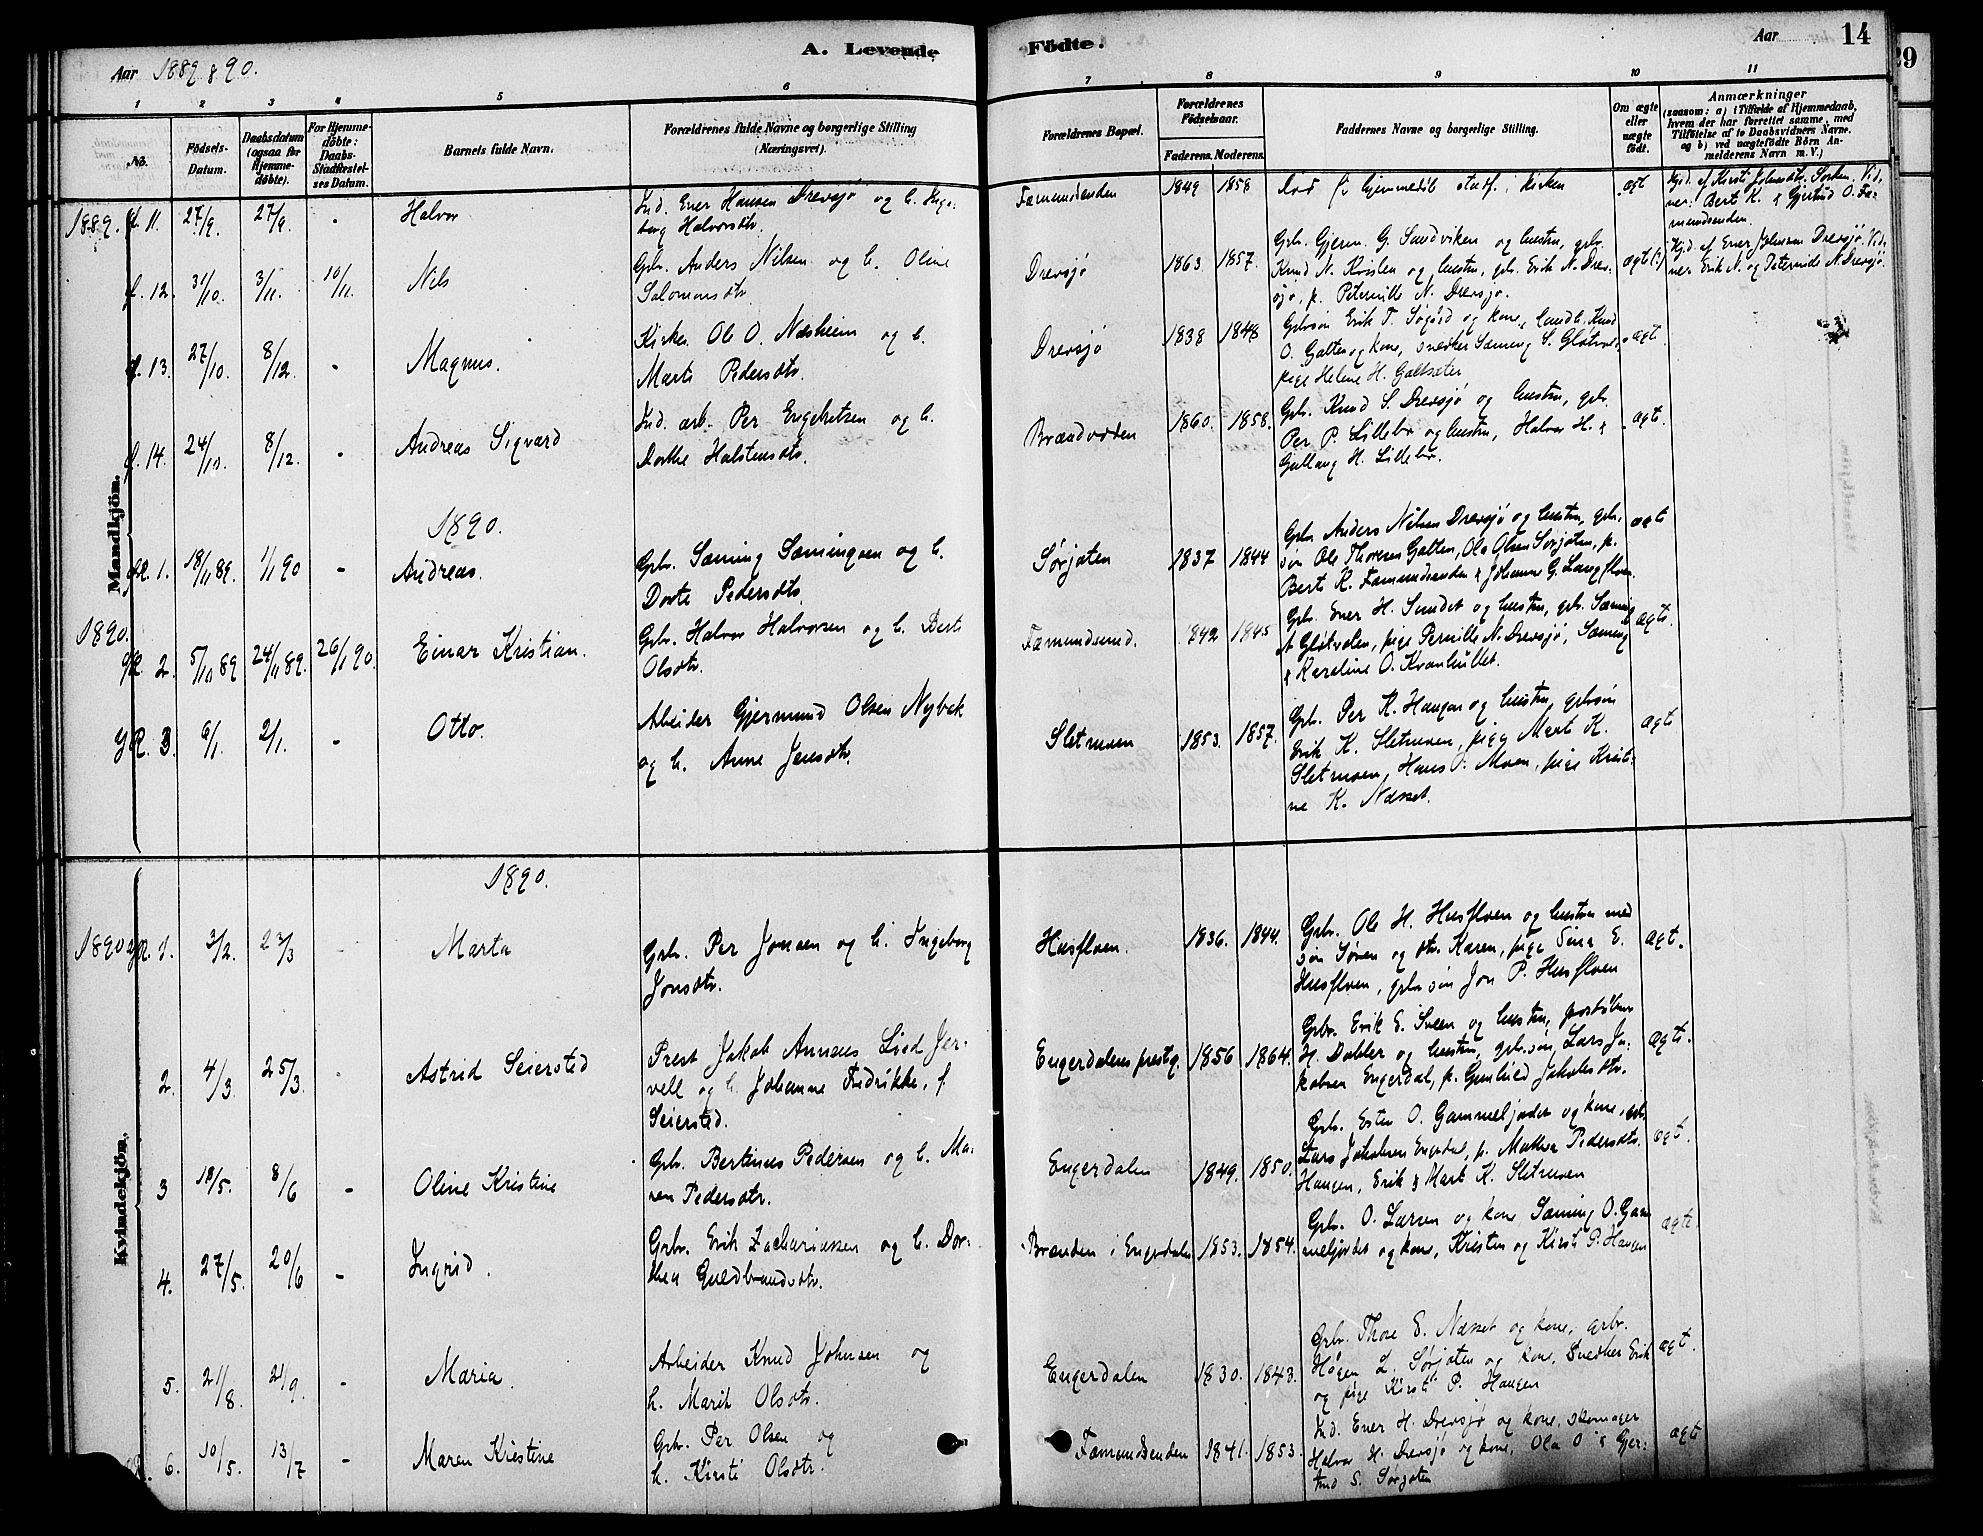 A. Levende Fødte.
Aar 1889 & 90.
Aar 14
29
1 2 3 4 5 6 7 8 9 10 11
No.
Fødsels-
Datum.
Daabsdatum
(ogsaa for
Hjemme-
døbte).
For Hjemme-
døbte:
Daabs-
Stadfæstel-
ses Datum.
Barnets fulde Navn.
Forældrenes fulde Navne og borgerlige Stilling
(Næringsvei).
Forældrenes Bopæl.
Forældrenes
Fødselsaar.
Faderens. Moderens.
Faddernes Navne og borgerlige Stilling.
Om ægte
eller
uægte
født.
Anmærkninger
(saasom: a) i Tilfælde af Hjemmedaab,
hvem der har forrettet samme, med
Tilføielse af to Daabsvidners Navne.
og b) ved uægtefødte Børn An-
melderens Navn m. V.)
Mandkjön.
1889. 11. 27/9. 27/9. - Halvor
Ind. Ener Hansen Drevsjø og h. Inge-
borg Halvorsdtr.
Fæmundsenden 1849 1858 i kirken ægt
12. 31/10. 3/11. 10/11. Nils
Gbr. Anders Nilsen og h. Oline
Salomonsdtr.
Drevsjø 1863. 1857.
Gbr. Gjerm. G. Sundviken og hustru, gbr.
Knud N. Kvislen og hustru, gbr. Erik N. Drev-
sjø, p. Pernille N. Drevsjø.
13. 27/10. 8/12. - Magnus.
Kirkes. Ole O. Næsheim og h.
Marte Pedersdtr.
Drevsjø 1838 1848
Gbrsøn Erik T. Søgård og kone, Landh. Knud
O. Galten og kone, snedker Sæming S. Gløtvold,
pige Helene H. Galtseter
ægt.
14. 24/10. 8/12. - Andreas Sigvard
Ind. arb. Per Engebretsen og h.
Dorthe Halstensdtr.
Brændvolden 1860. 1858.
Gbr. Knud S. Drevsjø og hustru, gbr.
Per P. Lillebo og hustru, Halvor H. &
Gullaug H. Lillebo.
ægt.
1890.
1. 18/11 89. 1/1 90 - Andreas.
Gbr. Sæming Sæmingsen og h.
Dorte Pedersdtr.
Sørjoten 1837 1844
Gbr. Anders Nilsen Drevsjø og hustru, gbr.-
søn Ole Thoresen Galten, Ola Olsen Sørjoten, p.
Berte K. Fæmundsenden & Johanne G. Langfloen.
ægt
1890. 2. 5/10 89 24/11 89. 26/1 90. Einar Kristian.
Gbr. Halvor Halvorsen og h. Berte
Olsdtr.
Fæmundsund. 1842 1845
Gbr. Ener H. Sundet og hustru, gbr. Sæming
Gløtvolen, pige Pernille N. Drevsjø, Sæming
& Karoline O. Kvanhullet.
ægt.
3. 6/1. 2/1. - Otto.
Arbeider Gjermund Olsen Nybak
og h. Anne Jensdtr.
Sletmoen 1853. 1857.
Gbr. Per K. Haugen og hustru, gbrsøn
Erik K. Sletmoen, pige Marte K.
Sletmoen, Hans Moen, pige Kristi-
ne K. Næsset.
ægt
Kvindekjön.
1890.
1890 1. 3/2. 23/3 Marta
Gbr. Per Jonsen og h. Ingeborg
Jonsdtr.
Husfloen. 1836. 1844.
Gbr. Ole H. Husfloen og hustru med
søn Søren og dtr. Karen, pige Sina E.
Husfloen, gbr.søn Jon P. Husfloen
ægt.
2. 4/3 25/3. Astrid Seiersted
Prest Jakob Annæus Lied Jer-
vell og h. Johanne Fredrikke, f.
Seiersted.
Engerdalens prestg. 1856 1864.
Gbr. Erik E. Sveen og hustru, postaabner
H. Dobler og hustru, gbr.søn Lars Ja-
kobsen Engerdal, p. Gunhild Jakobsdtr.
ægt.
3 18/5. 8/6 - Oline Kristine
Gbr. Bertinus Pedersen og h. Ma-
ren Pedersdtr.
Engerdalen 1849. 1850.
Gbr. Esten O. Gammeljordet og kone, gbr.
Lars Jakobsen Engerdal, p. Mathea Pedersdtr.
Haugen, Erik & Marte K. Sletmoen
ægt.
4. 27/5. 20/6 - Ingrid.
Gbr. Erik Zachariassen og h. Dor-
thea Guldbrandsdtr.
Brænden i Engerdalen 1853. 1854.
Gbr. O. Larsen og kone, Sæming O. Gam-
meljordet og kone, Kristen og Kirsti P. Haugen
ægte
5. 21/8. 21/9. - Maria.
Arbeider Knud Johnsen og
h. Marit Olsdtr.
Engerdalen 1830. 1843.
Gbr. Thore E. Næsset og kone, gbr.
Høgen L. Sørjoten og kone, Snedker Erik
og pige Kirsti P. Haugen
ægt.
6. 10/5. 13/7 - Maren Kristine
Gbr. Per Olsen og
h. Kirsti Olsdtr.
Fæmundsenden 1841. 1853.
Ind. Ener H. Drevsjø og kone, skomager
Halvor H. Drevsjø og kone, Ola O. & Gjer-
trud S. Sørjoten
ægt